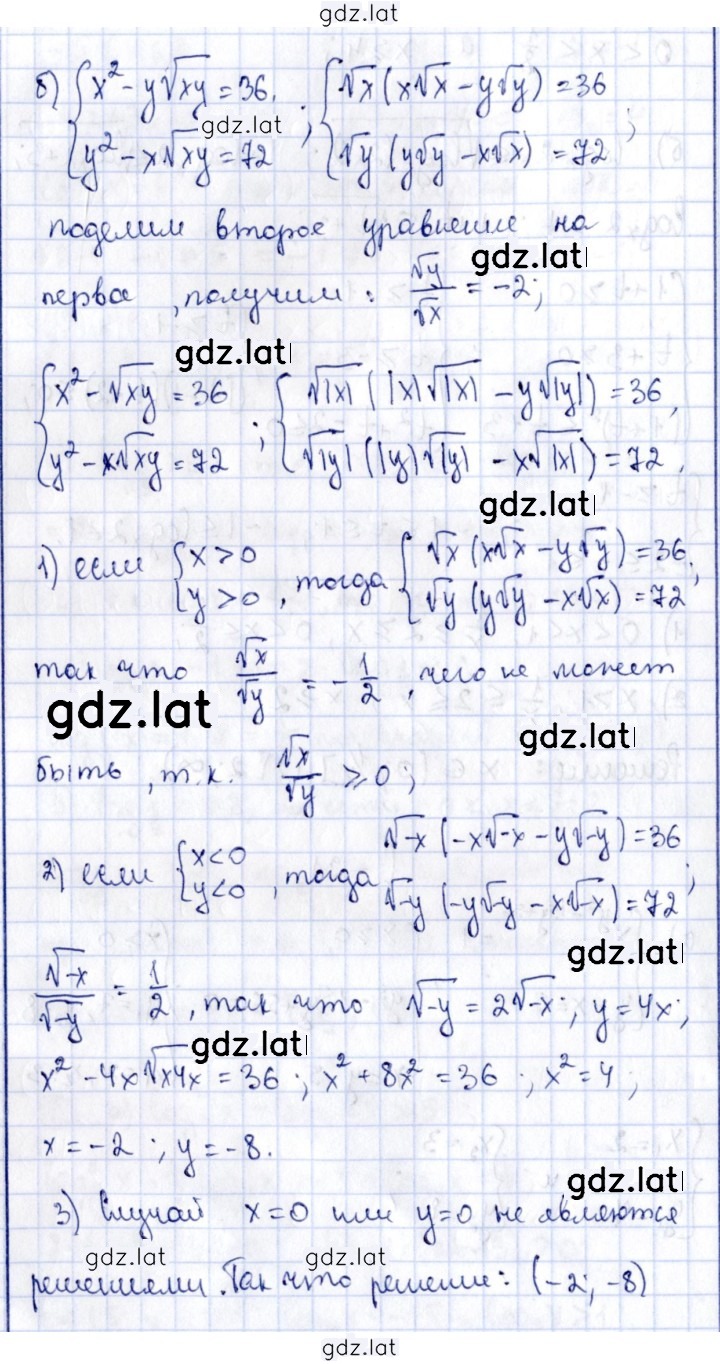 gdz.lat
б) { x² - y√xy = 36, ; { √x (x√x - y√y) = 36 ;
gdz.lat
{ y² - x√xy = 72 { √y (y√y - x√x) = 72
поделим второе уравнение на
gdz.lat
первое, получим: √y/√x = -2;
gdz.lat
{ x² - √xy = 36 ; { √|x| (|x|√|x| - y√|y|) = 36,
{ y² - x√xy = 72 { √|y| (|y|√|y| - x√|x|) = 72,
gdz.lat
1) если { x > 0 , тогда { √x (x√x - y√y) = 36 ;
{ y > 0 { √y (y√y - x√x) = 72
так что √x/√y = - 1/2, чего не может
gdz.lat
gdz.lat
быть, т.к. √x/√y ⩾ 0;
2) если { x < 0 , тогда √-x (-x√-x - y√-y) = 36 ;
{ y < 0 √-y (-y√-y - x√-x) = 72
gdz.lat
√-x/√-y = 1/2, так что √-y = 2√-x; y = 4x;
gdz.lat
x² - 4x√x4x = 36; x² + 8x² = 36; x² = 4;
x = -2; y = -8.
gdz.lat
3) Случай x = 0 или y = 0 не являются
gdz.lat gdz.lat
решениями. Так что решение: (-2; -8)
gdz.lat